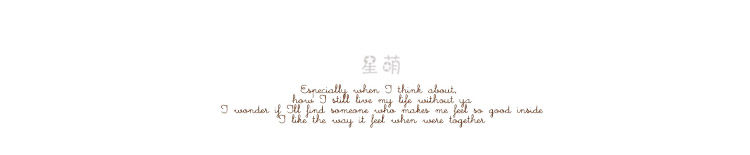 星萌
Especially when I think about,
how I still live my life without ya
I wonder if I'll find someone who makes me feel so good inside
I like the way it feel when were together